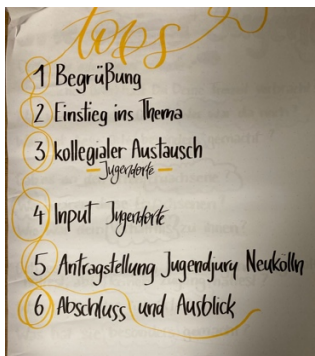 tops
1 Begrüßung
2 Einstieg ins Thema
3 kollegialer Austausch
Jugendorte
4 Input Jugendorte
5 Antragstellung Jugendjury Neukölln
6 Abschluss und Ausblick